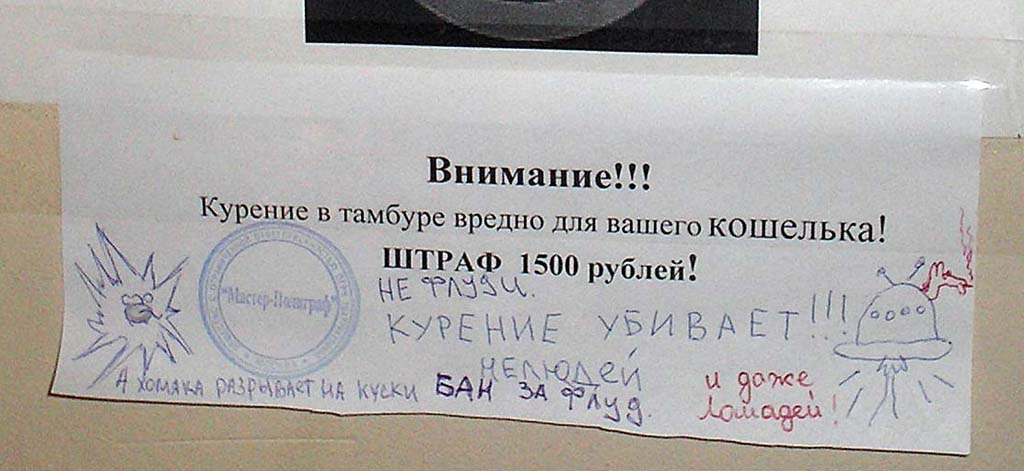 Внимание!!!
Курение в тамбуре вредно для вашего кошелька!
ШТРАФ 1500 рублей!
НЕ ФЛУДИ.
"Мастер-Полиграф"
КУРЕНИЕ УБИВАЕТ!!!
НЕЛЮДЕЙ
А ХОМЯКА РАЗРЫВАЕТ НА КУСКИ БАН ЗА ФЛУД.
и даже
лошадей!